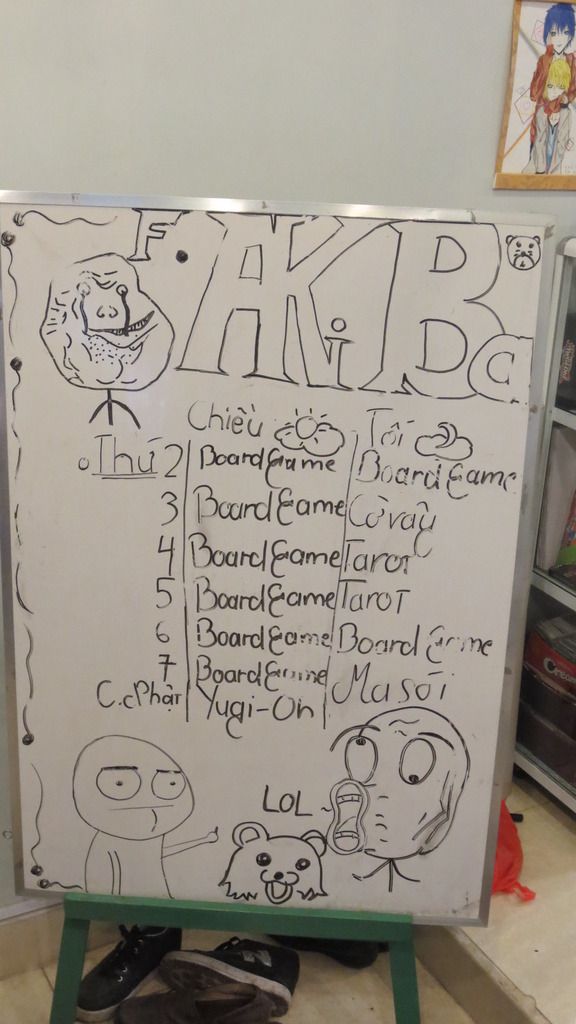 F. AKiBa
Chiều Tối
Thứ 2 BoardGame BoardGame
3 BoardGame Cờ vây
4 BoardGame Tarot
5 BoardGame Tarot
6 BoardGame BoardGame
7 BoardGame Ma sói
C.cPhật Yugi-Oh
LOL